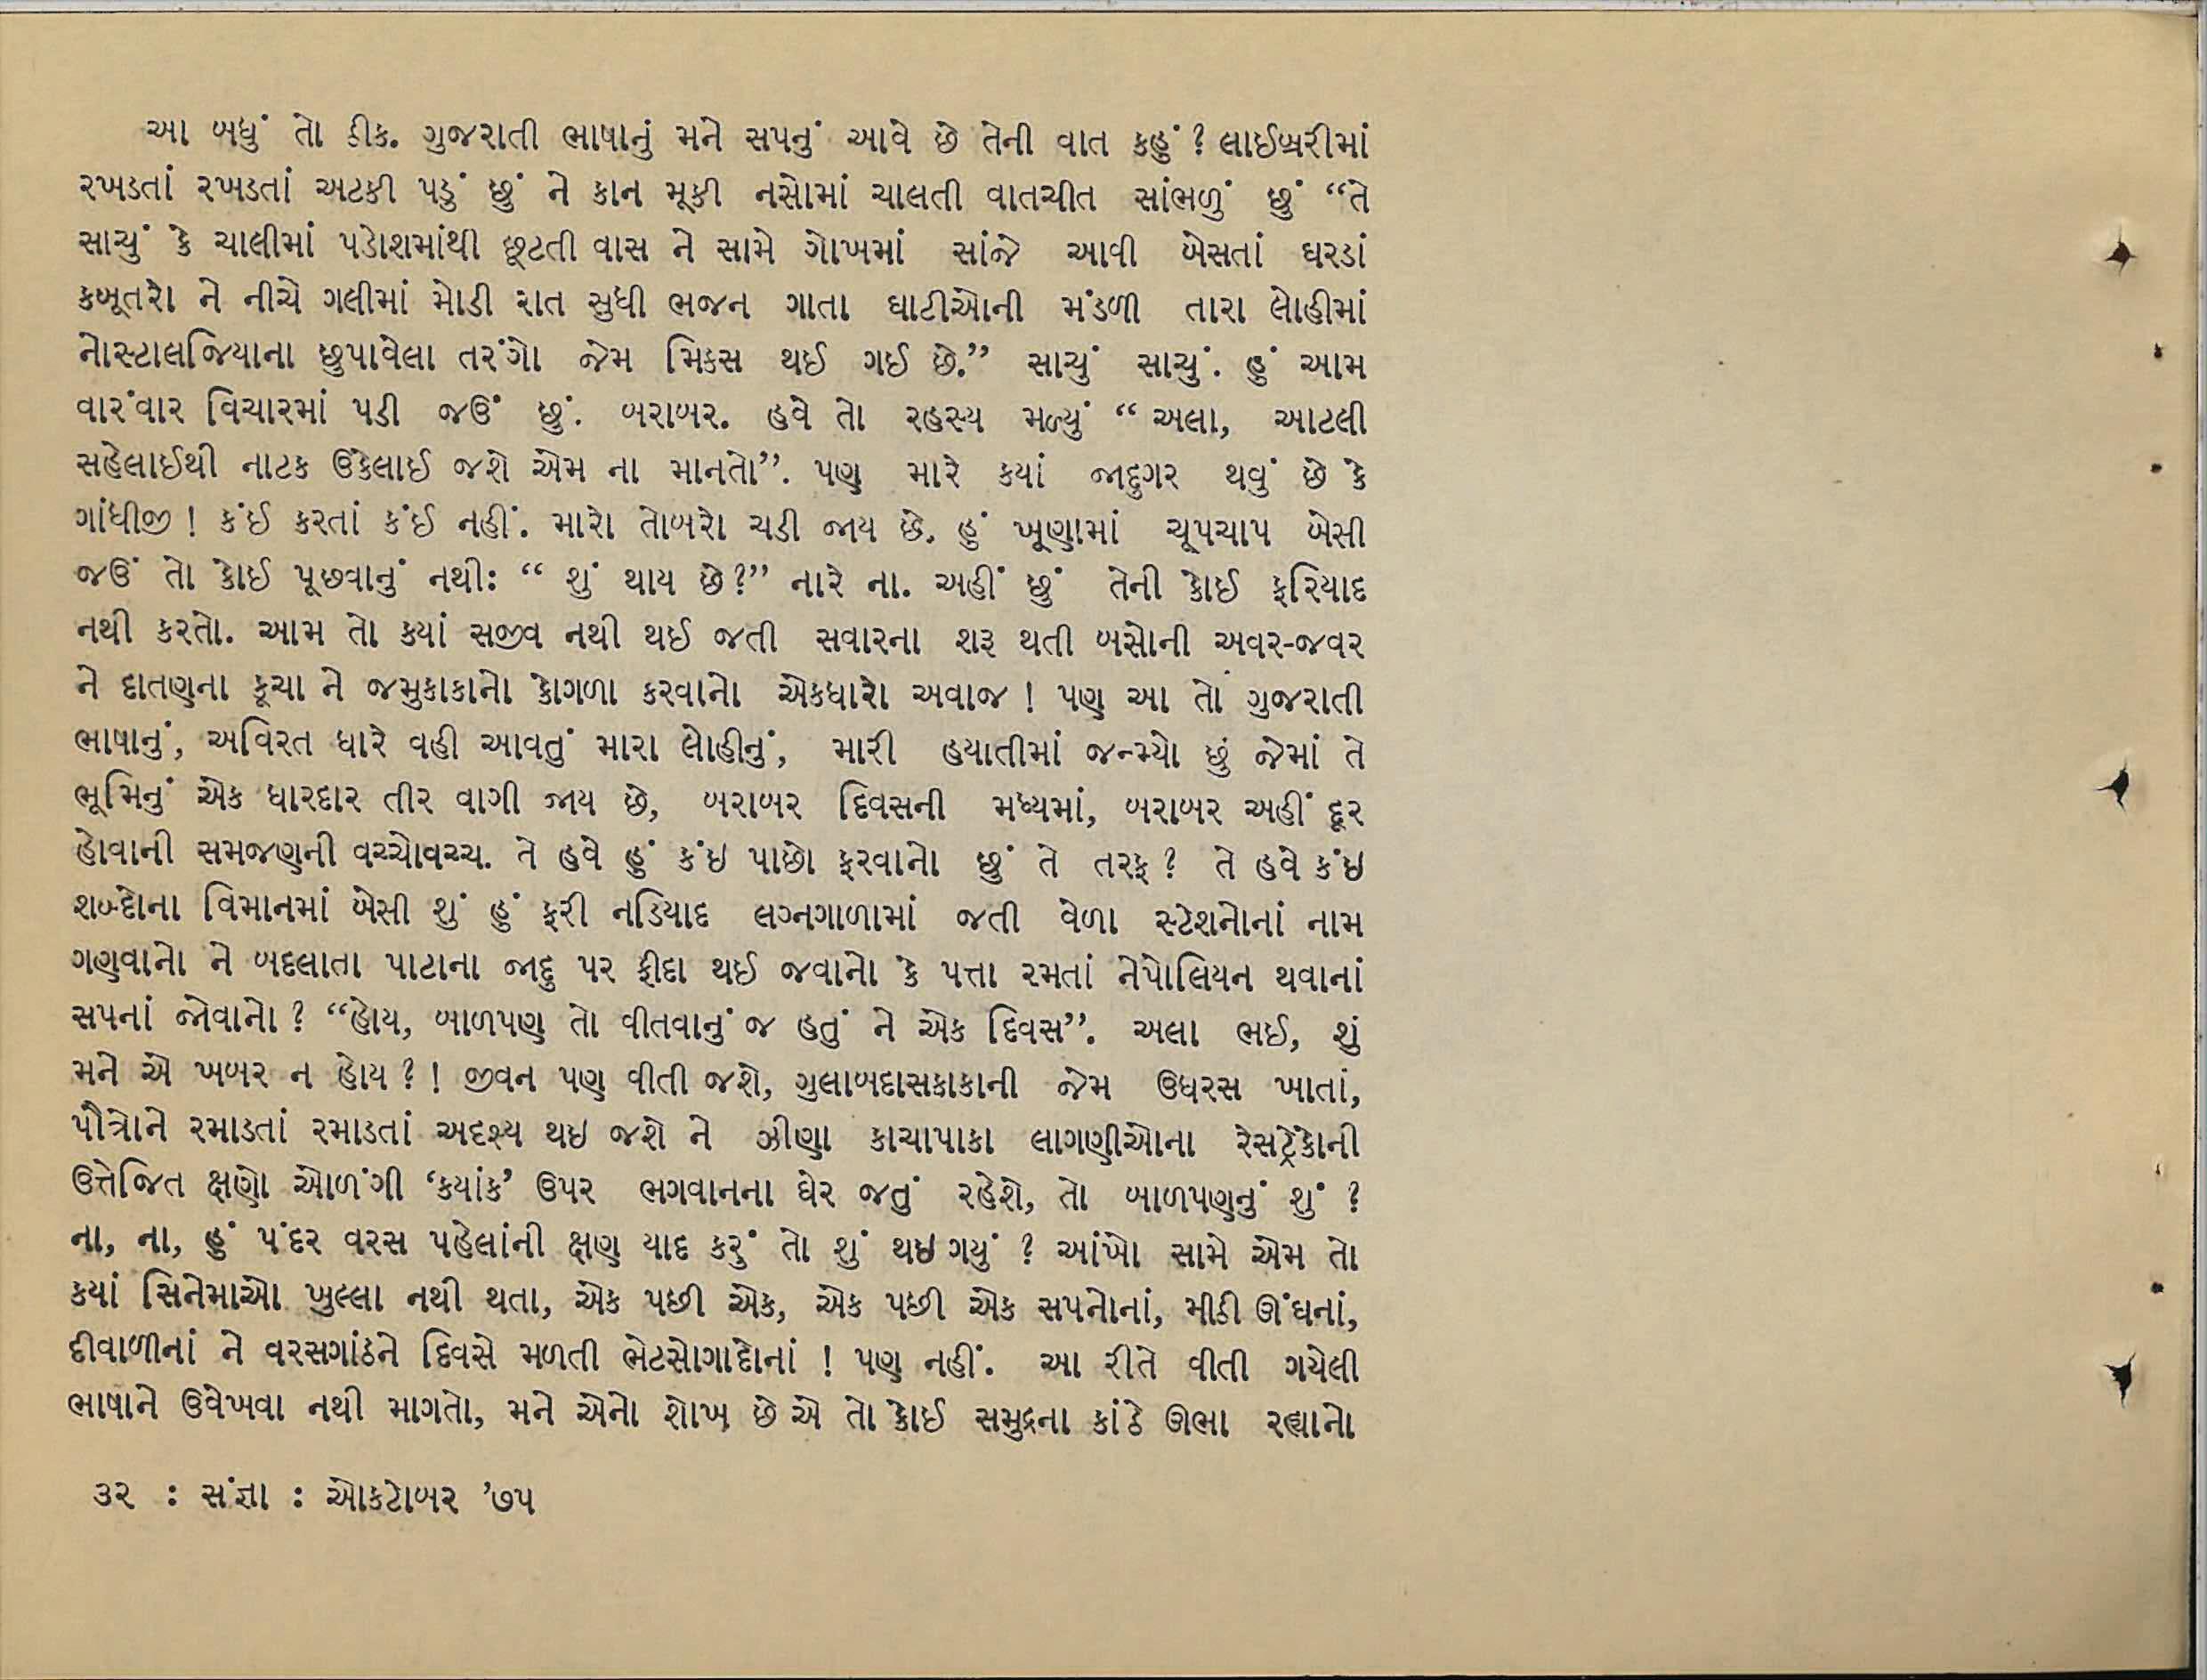 આ બધું તો ઠીક. ગુજરાતી ભાષાનું મને સપનું આવે છે તેની વાત કહું ? લાઈબ્રરીમાં
રખડતાં રખડતાં અટકી પડું છું ને કાન મૂકી નસોમાં ચાલતી વાતચીત સાંભળું છું “તે
સાચું કે ચાલીમાં પડોશમાંથી છૂટતી વાસ ને સામે ગોખમાં સાંજે આવી બેસતાં ઘરડાં
કબૂતરો ને નીચે ગલીમાં મોડી રાત સુધી ભજન ગાતા ઘાટીઓની મંડળી તારા લોહીમાં
નોસ્ટાલજિયાના છુપાવેલા તરંગો જેમ મિક્સ થઈ ગઈ છે.” સાચું સાચું. હું આમ
વારંવાર વિચારમાં પડી જઉં છું. બરાબર. હવે તો રહસ્ય મળ્યું “ અલા, આટલી
સહેલાઈથી નાટક ઉકેલાઈ જશે એમ ના માનતો”. પણ મારે કયાં જાદુગર થવું છે કે
ગાંધીજી ! કંઈ કરતાં કંઈ નહીં. મારો તોબરો ચડી જાય છે. હું ખૂણામાં ચૂપચાપ બેસી
જઉં તો કોઈ પૂછવાનું નથી: “ શું થાય છે ?” નારે ના. અહીં છું તેની કોઈ ફરિયાદ
નથી કરતો. આમ તો કયાં સજીવ નથી થઈ જતી સવારના શરૂ થતી બસોની અવર-જવર
ને દાતણના કૂચા ને જમુકાકાનો કોગળા કરવાનો એકધારો અવાજ ! પણ આ તો ગુજરાતી
ભાષાનું, અવિરત ધારે વહી આવતું મારા લોહીનું, મારી હયાતીમાં જન્મ્યો છું જેમાં તે
ભૂમિનું એક ધારદાર તીર વાગી જાય છે, બરાબર દિવસની મધ્યમાં, બરાબર અહીં દૂર
હોવાની સમજણની વચ્ચોવચ્ચ. તે હવે હું કંઇ પાછો ફરવાનો છું તે તરફ ? તે હવે કંઇ
શબ્દોના વિમાનમાં બેસી શું હું ફરી નડિયાદ લગ્નગાળામાં જતી વેળા સ્ટેશનોનાં નામ
ગણવાનો ને બદલાતા પાટાના જાદુ પર ફીદા થઈ જવાનો કે પત્તા રમતાં નેપોલિયન થવાનાં
સપનાં જોવાનો ? “હોય, બાળપણ તો વીતવાનું જ હતું ને એક દિવસ”. અલા ભઈ, શું
મને એ ખબર ન હોય ? ! જીવન પણ વીતી જશે, ગુલાબદાસકાકાની જેમ ઉધરસ ખાતાં,
પૌત્રોને રમાડતાં રમાડતાં અદૃશ્ય થઇ જશે ને ઝીણા કાચાપાકા લાગણીઓના રેસટ્રેકોની
ઉત્તેજિત ક્ષણો ઓળંગી ‘કયાંક’ ઉપર ભગવાનના ઘેર જતું રહેશે, તો બાળપણનું શું ?
ના, ના, હું પંદર વરસ પહેલાંની ક્ષણ યાદ કરું તો શું થઇ ગયું ? આંખો સામે એમ તો
કયાં સિનેમાઓ ખુલ્લા નથી થતા, એક પછી એક, એક પછી એક સપનોનાં, મીઠી ઊંઘનાં,
દીવાળીનાં ને વરસગાંઠને દિવસે મળતી ભેટસોગાદોનાં ! પણ નહીં. આ રીતે વીતી ગયેલી
ભાષાને ઉવેખવા નથી માગતો, મને એનો શોખ છે એ તો કોઈ સમુદ્રના કાંઠે ઊભા રહ્યાનો
૩૨ : સંજ્ઞા : ઓકટોબર ’૭૫